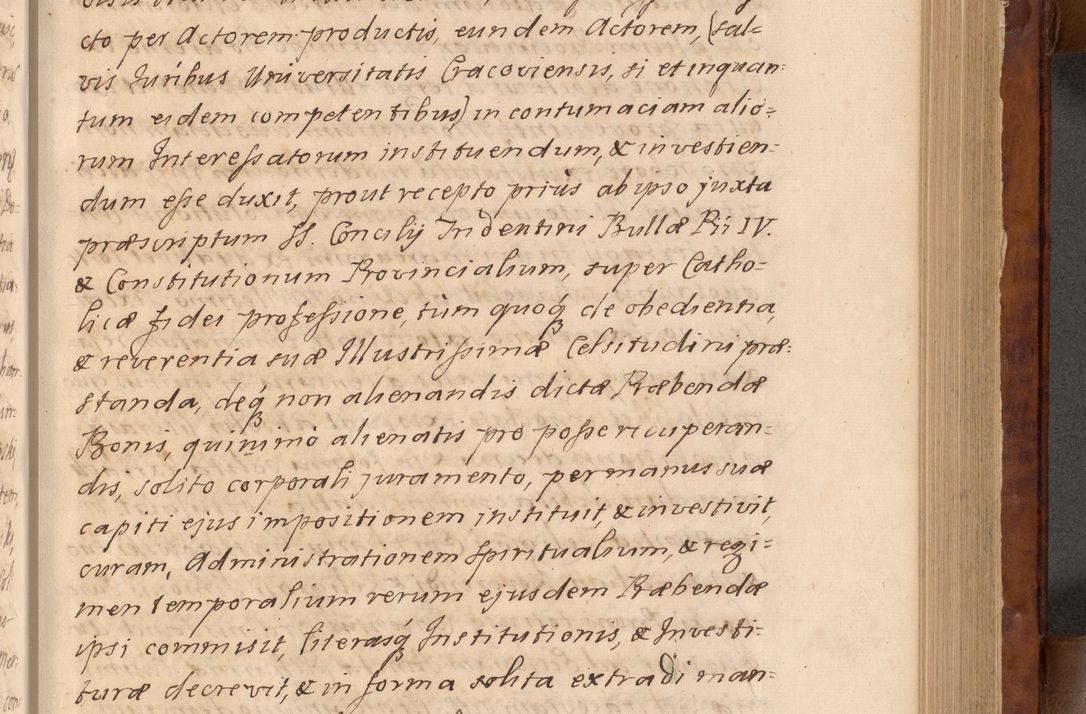 cto per Actorem productis, eundem Actorem, (sal=
vis Juribus Universitatis Cracoviensis, si et inquan=
tum eidem competentibus) in contumaciam alio=
rum Interessatorum instituendum, & investien=
dum esse duxit, prout recepto prius ab ipso juxta
præscriptum SS. Concilij Tridentini Bullæ Pii IV.
& Constitutionum Provincialium, super Catho=
licæ fidei professione, tum quoq́ꝫ de obedientia,
& reverentia suæ Illustrissimæ Celsitudini præ=
standa, deq́ꝫ non alienandis dictæ Præbendæ
Bonis, quinimo alienatis pro posse recuperan=
dis, solito corporali juramento, per manus suæ
capiti ejus impositionem instituit, & investivit,
curam, Administrationem spiritualium, & regi=
men temporalium rerum ejusdem Præbendæ
ipsi commisit, literasq́ꝫ Institutionis, & Investi=
turæ decrevit, & in forma solita extradi man=